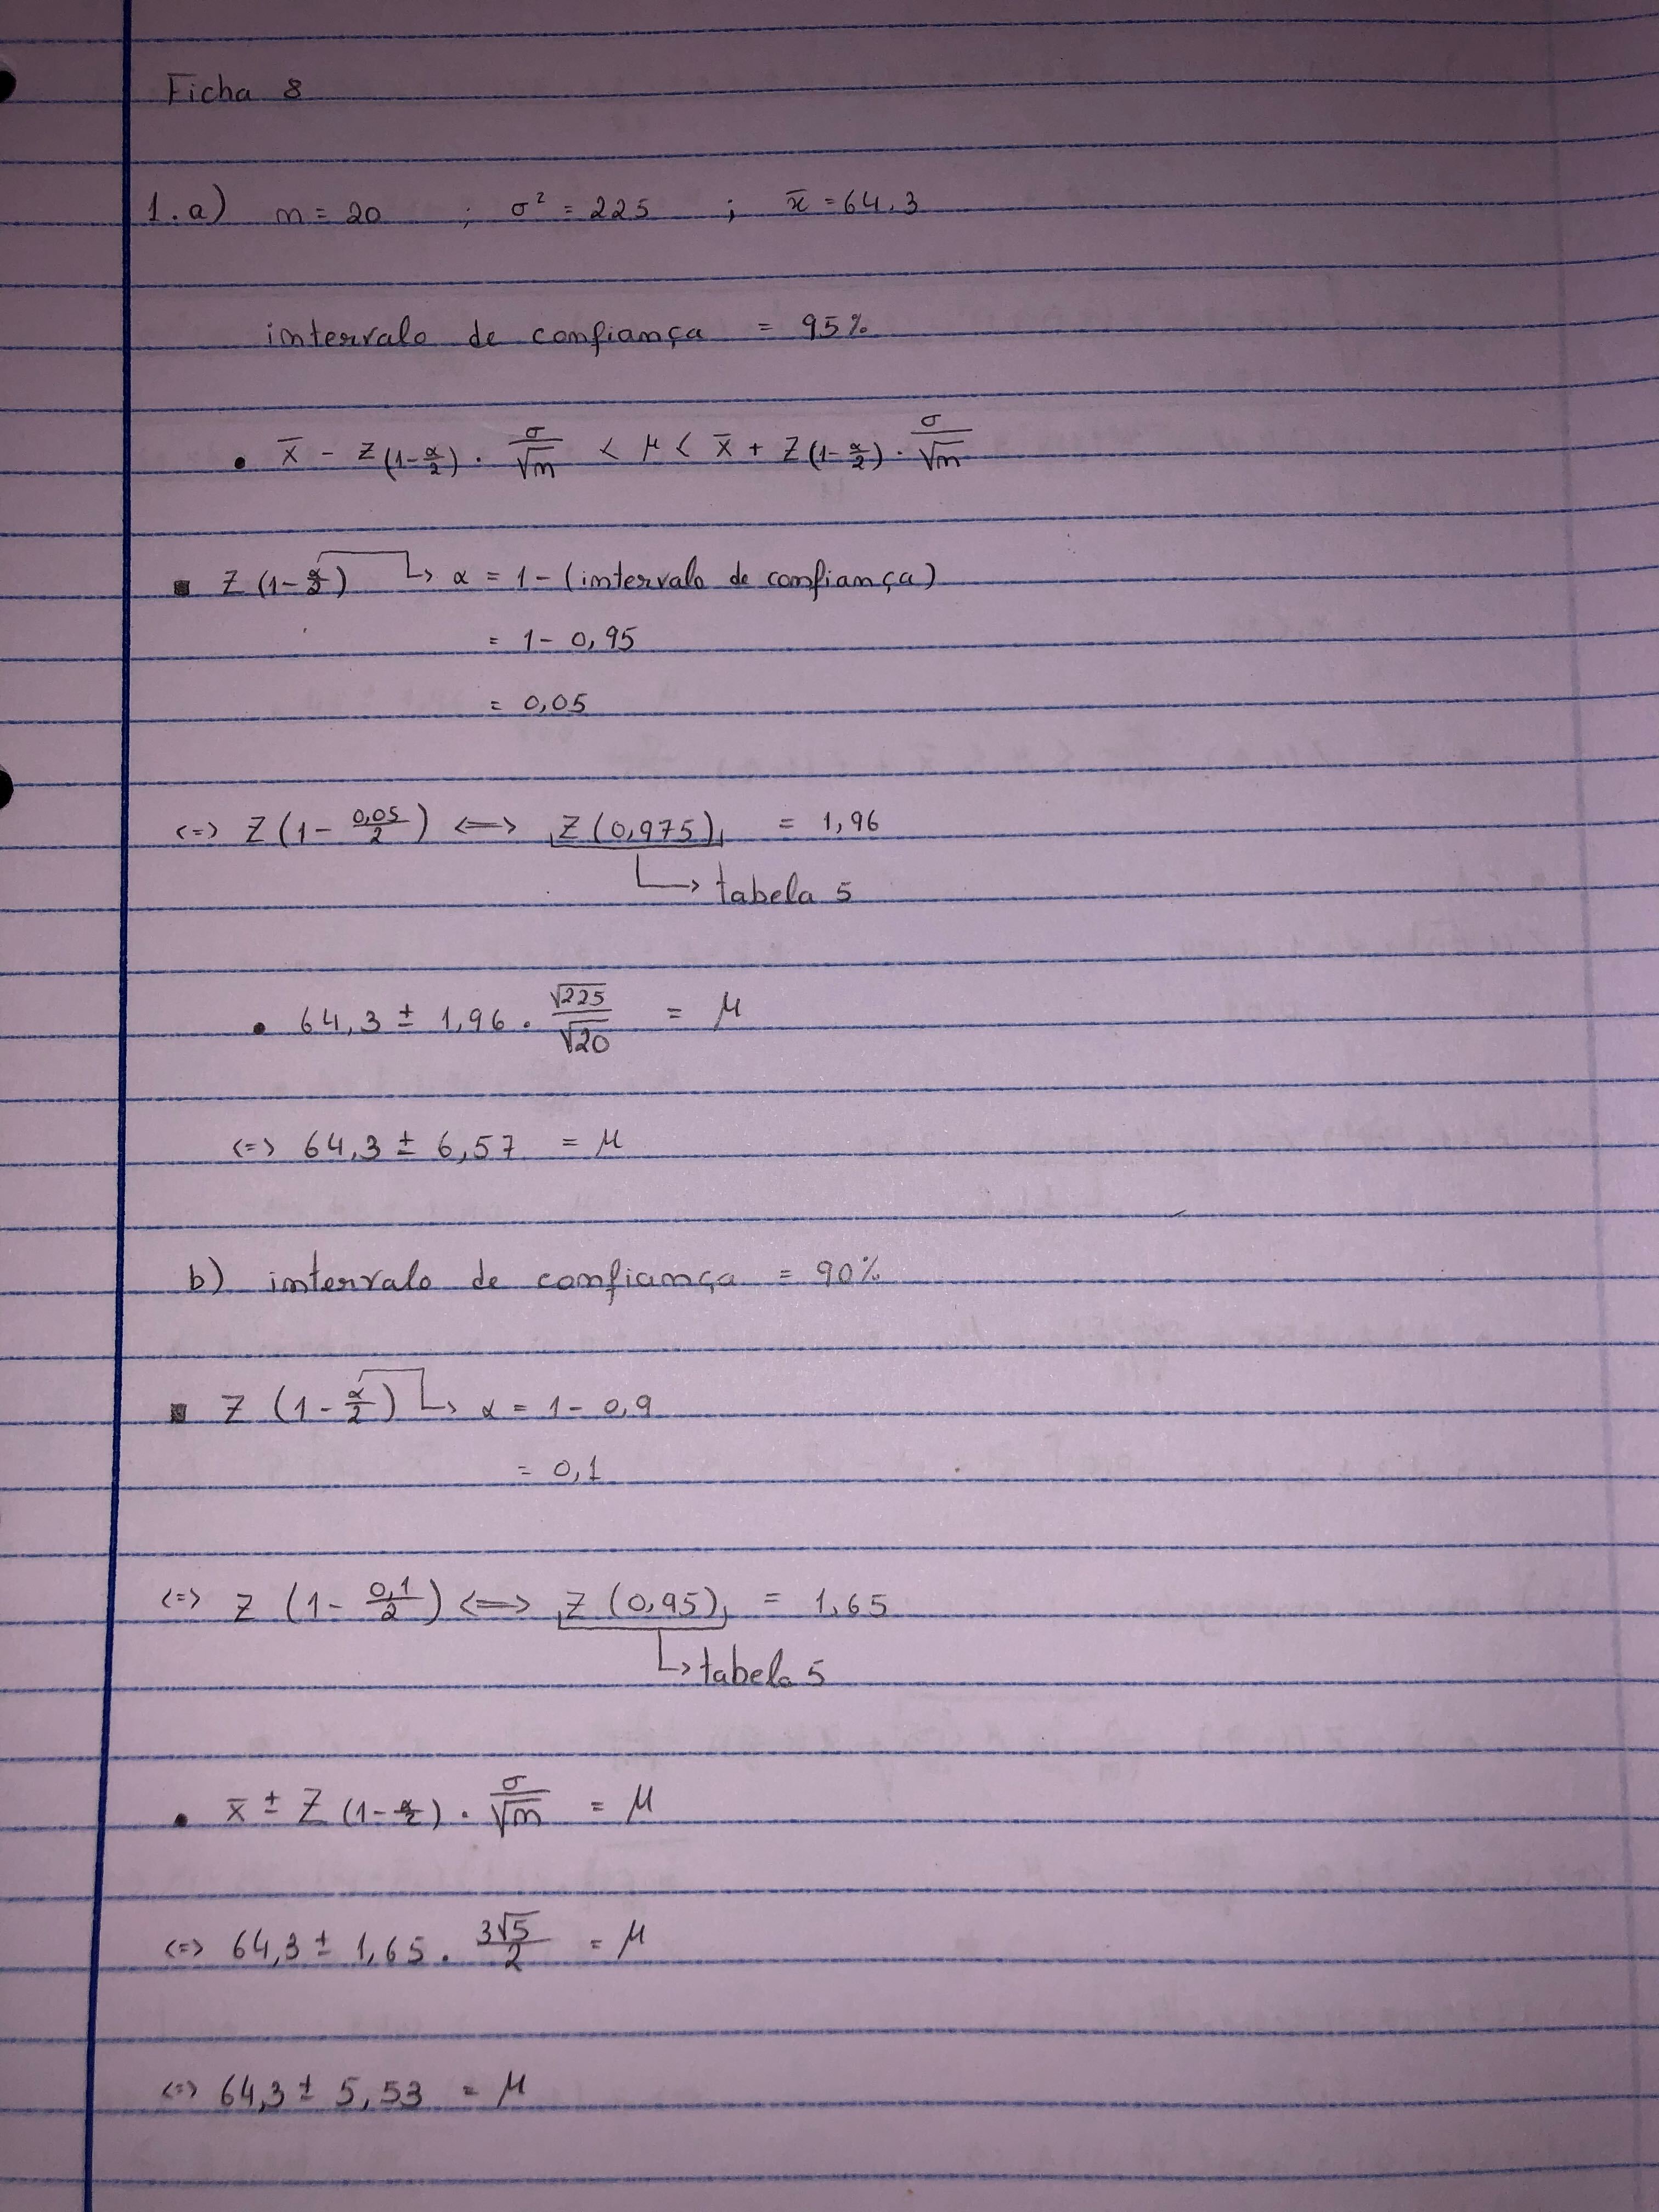 Ficha 8
1.a) n = 20 ; σ² = 225 ; x̄ = 64,3
intervalo de confiança = 95%
• x̄ - z(1-α/2) · σ/√n < μ < x̄ + z(1-α/2) · σ/√n
▪ z(1-α/2) ↳ α = 1 - (intervalo de confiança)
= 1 - 0,95
= 0,05
<=> z(1 - 0,05/2) <=> z(0,975) = 1,96
↳ tabela 5
• 64,3 ± 1,96 · √225/√20 = μ
<=> 64,3 ± 6,57 = μ
b) intervalo de confiança = 90%
▪ z(1-α/2) ↳ α = 1 - 0,9
= 0,1
<=> z(1 - 0,1/2) <=> z(0,95) = 1,65
↳ tabela 5
• x̄ ± z(1-α/2) · σ/√n = μ
<=> 64,3 ± 1,65 · 3√5/2 = μ
<=> 64,3 ± 5,53 = μ